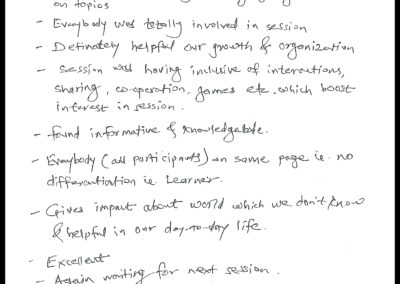 on topics
- Everybody was totally involved in session
- Definately helpful our growth & organization
- Session was having inclusive of interactions,
sharing, co-operation, games etc. which boost
interest in session.
- found informative & knowledgable.
- Everybody (all participants) on same page i.e. no
differentiation i.e. Learner.
- Gives impact about world which we don't know
& helpful in our day-to-day life.
- Excellent
- Again waiting for next session.